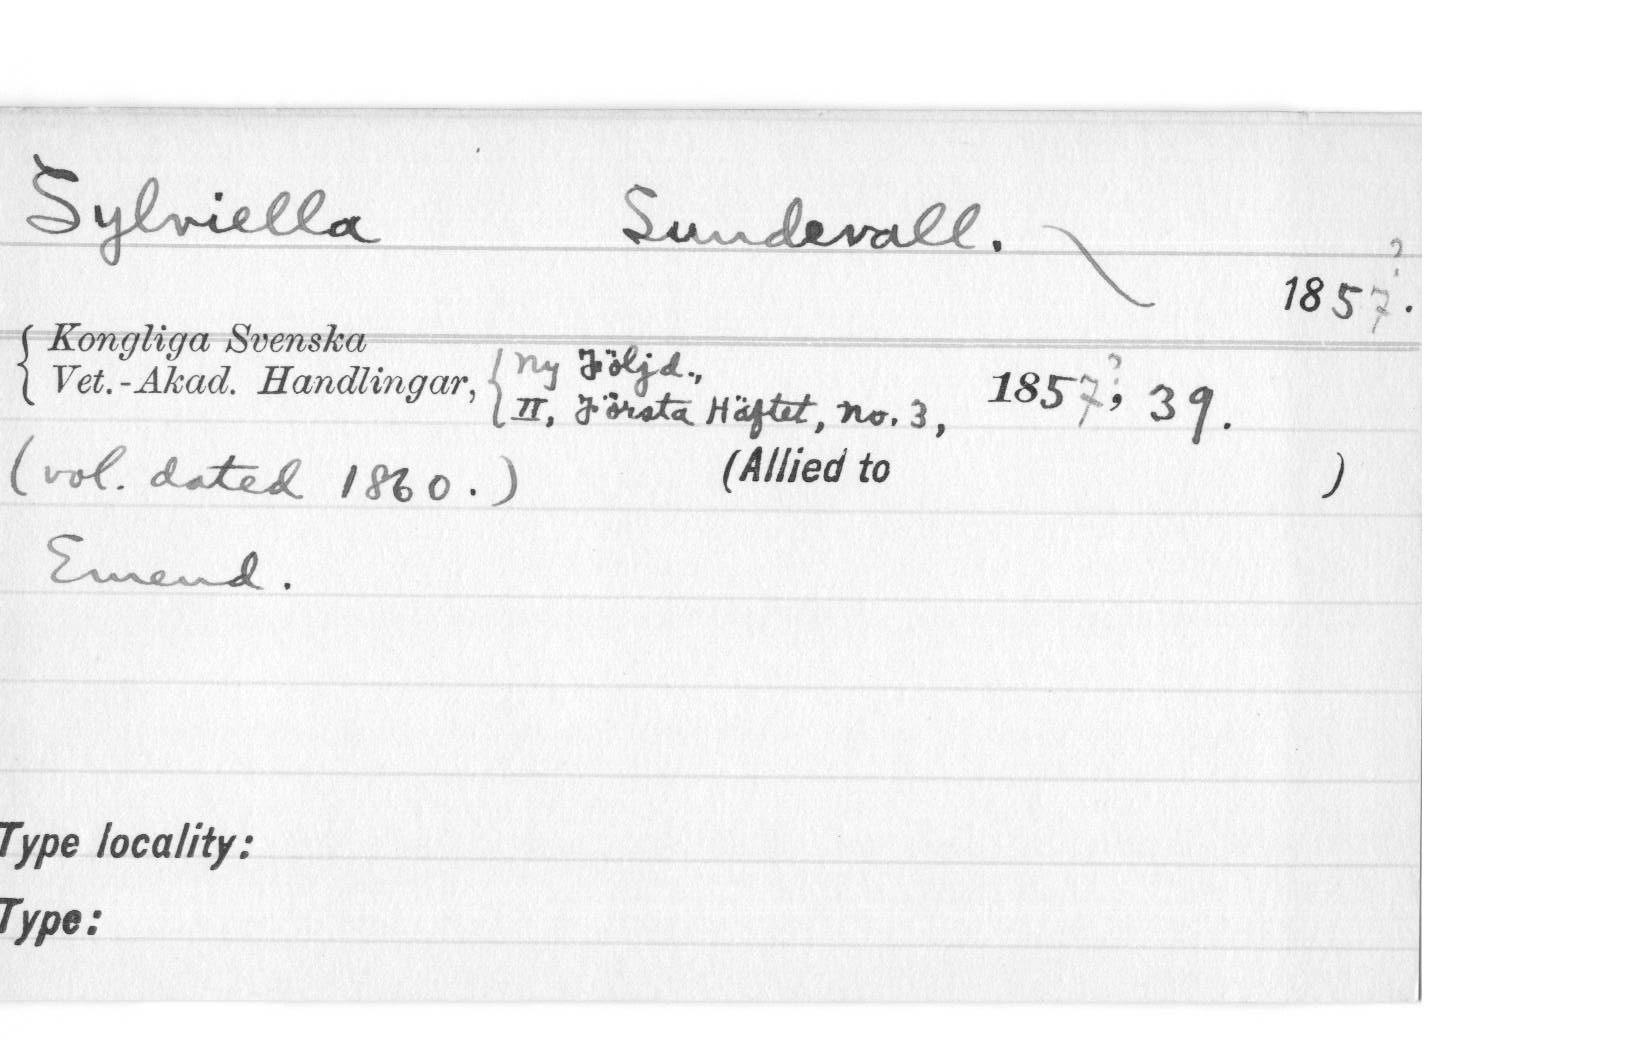 Sylviella Sundevall.
1857?.
{ Kongliga Svenska { Ny Följd.,
Vet.-Akad. Handlingar, II, Första Häftet, no. 3, 1857?, 39.
(vol. dated 1860.) (Allied to )
Emend.
Type locality:
Type: